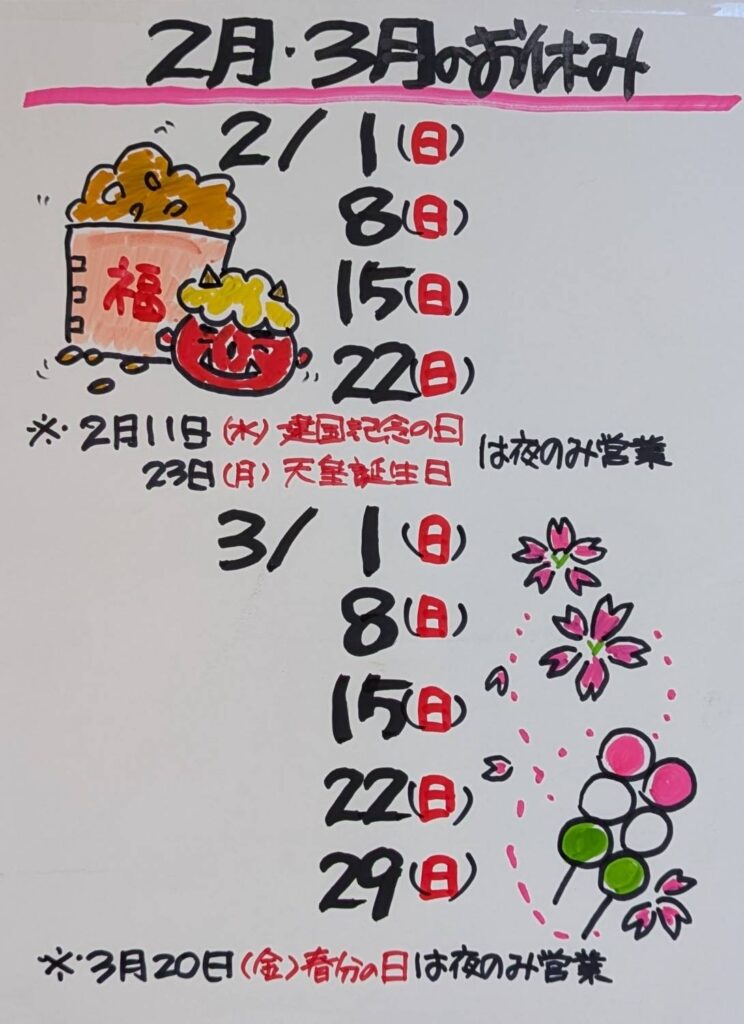 2月・3月のお休み
2/ 1(日)
8(日)
15(日)
福
22(日)
※・2月11日(水)建国記念の日
23日(月)天皇誕生日
は夜のみ営業
3/ 1(日)
8(日)
15(日)
22(日)
29(日)
※・3月20日(金)春分の日は夜のみ営業